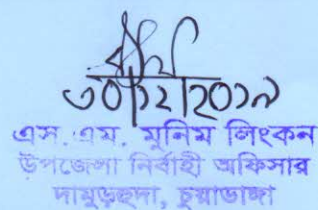 ৩০/১২/২০১৯
এস. এম. মুনিম লিংকন
উপজেলা নির্বাহী অফিসার
দামুড়হুদা, চুয়াডাঙ্গা